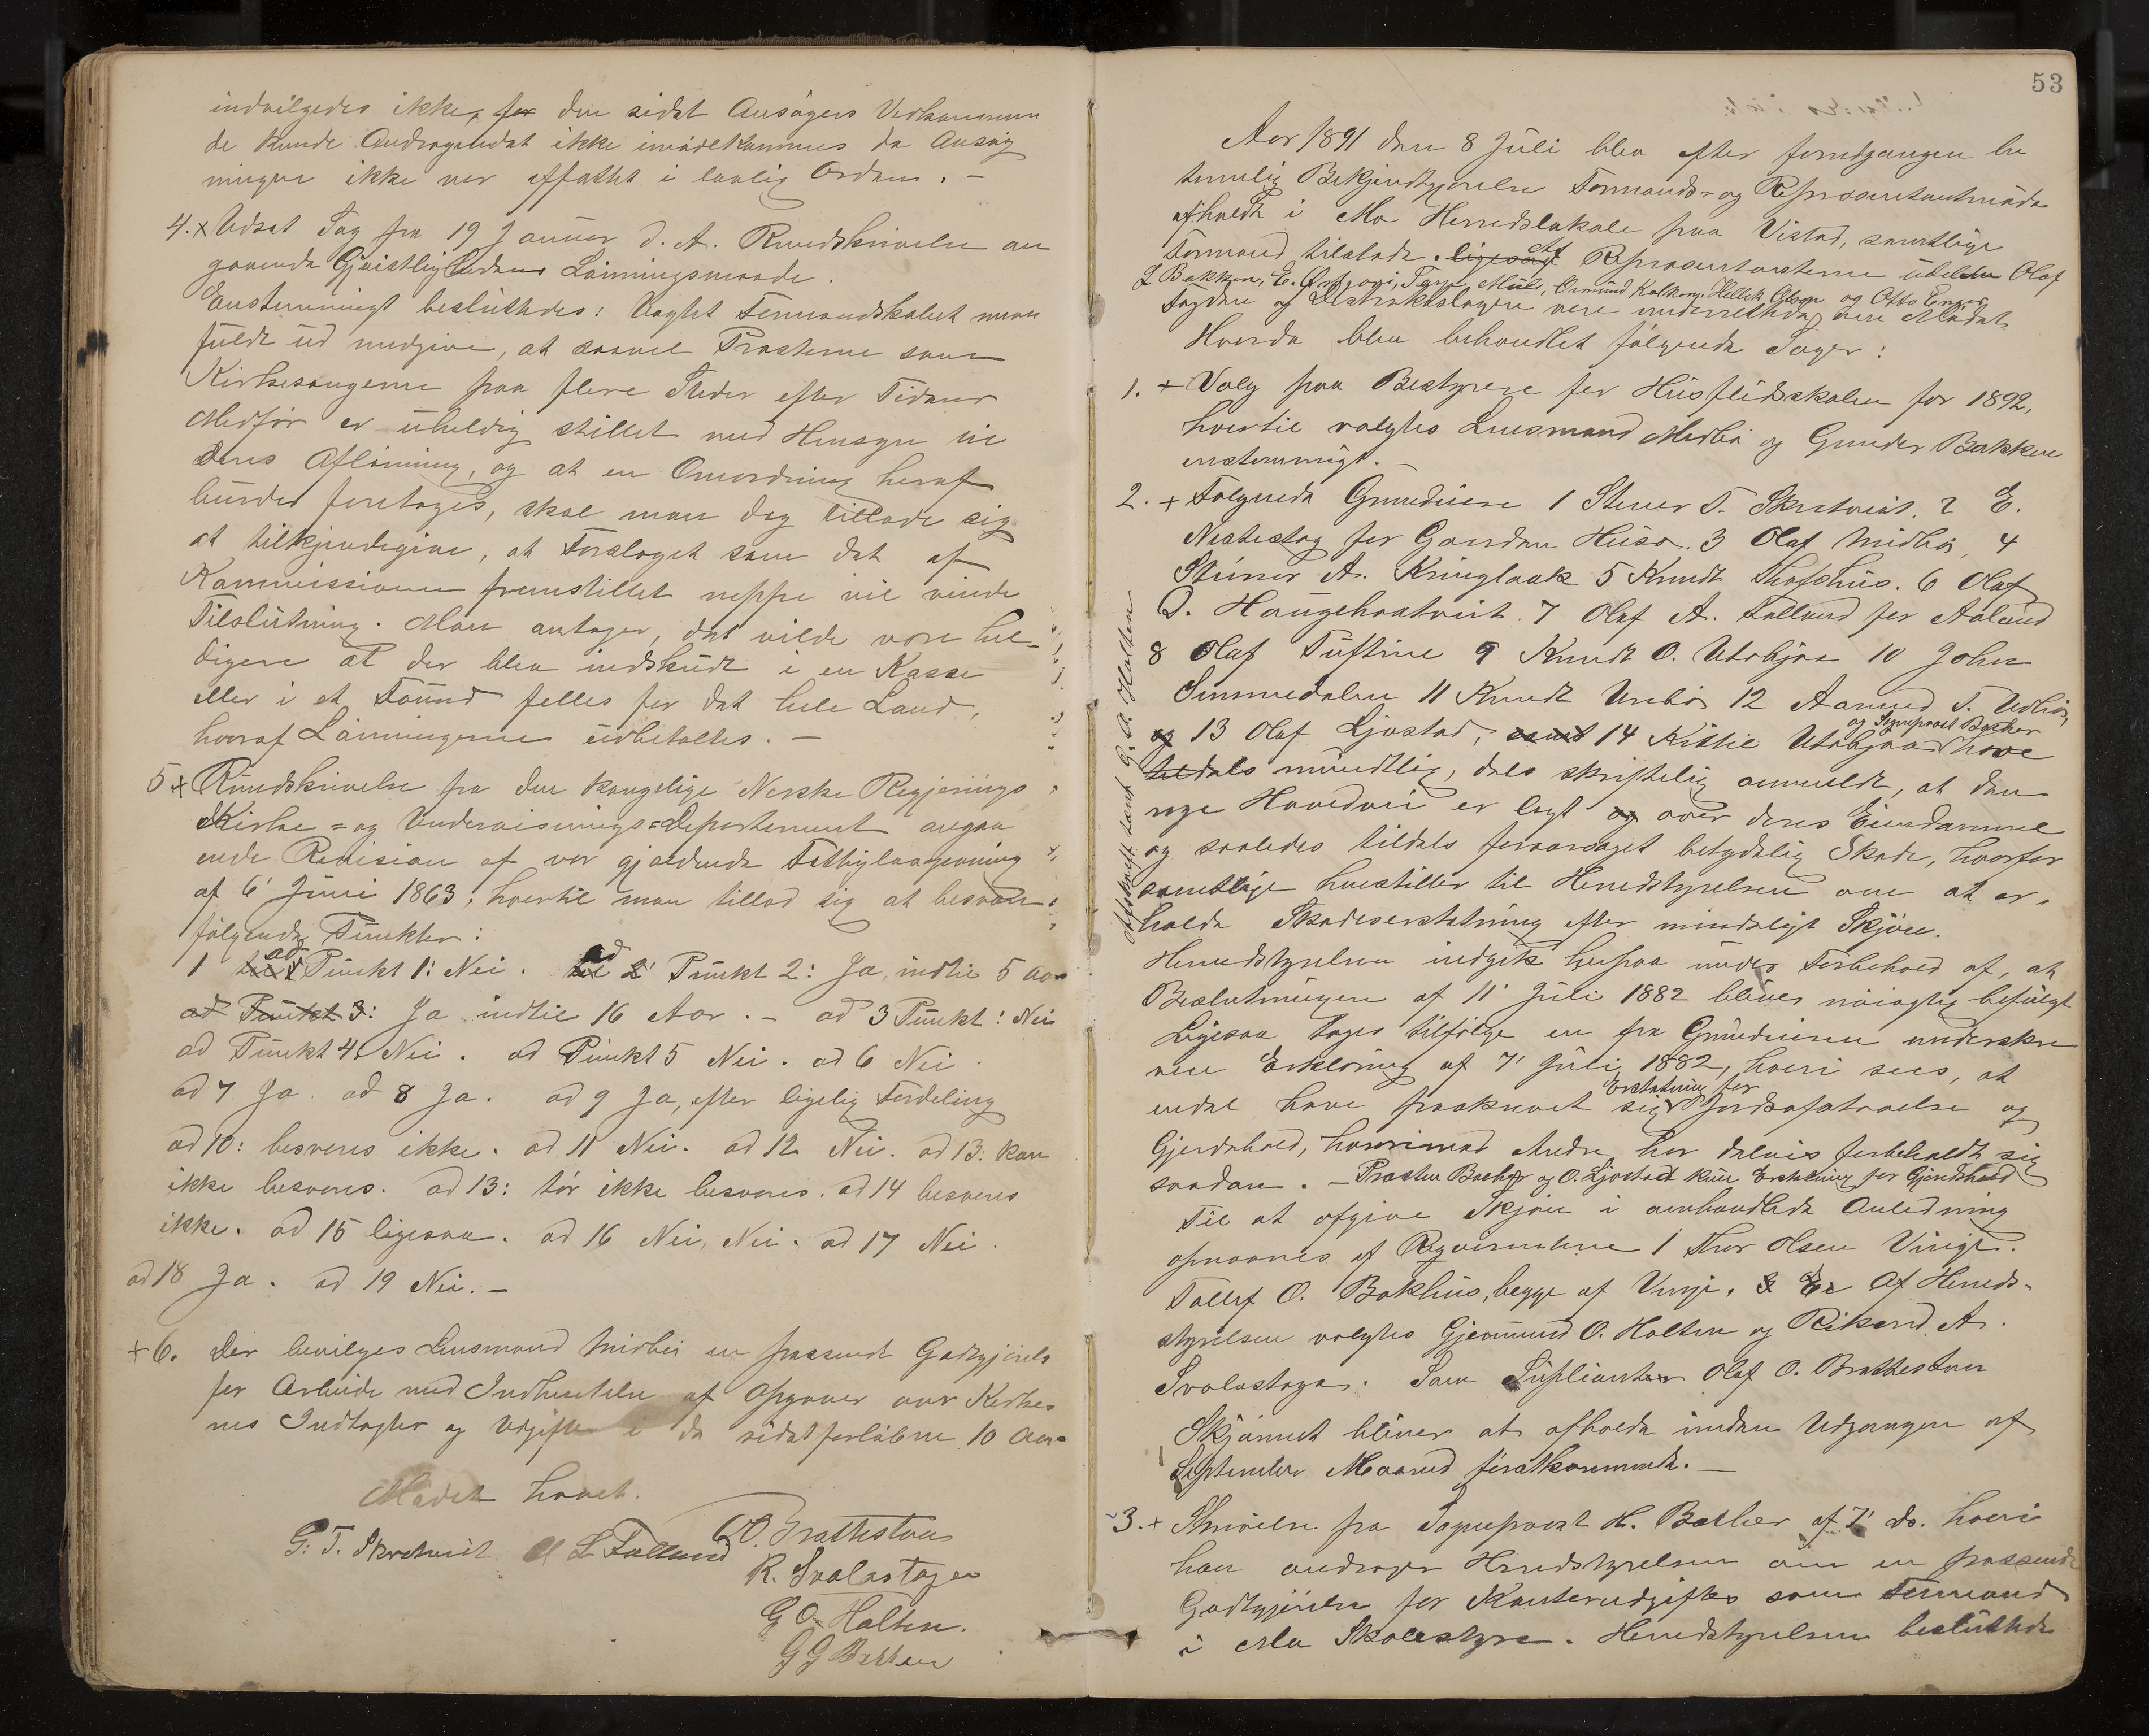 indvilgedes ikke, for den sidst Ansøgers Vedkommen
de kunde Andragendet ikke imødekommes da Ansøg
ningen ikke var affattet i lovlig Orden. –
4. x Udsat Sag fra 19 Januar d. A. Rundskrivelse an
gaaende Gjeistlighedens Lønningsmaade.
Eenstemmigt besluttedes: Uagtet Formandskabet maa
fuldt ud medgive, at saavel Presterne som
Kirkesangerne paa flere Steder efter Tidens
Medfør er uheldig stillet med Hensyn til
deres Aflønning, og at en Omordning heraf
burdes foretages, skal man dog tillade sig
at tilkjendegive, at Forslaget som det af
Kommissionen fremstillet neppe vil vinde
Tilslutning. Man antager, det vilde være hel-
digere at der blev indskudt i en Kasse
eller i et Found felles for det hele Land,
hvoraf Lønningerne udbetaltes. –
5 x Rundskrivelse fra den kongelige Norske Regjerings
Kirke- og Undervisnings-Departement angaa
ende Revision af vor gjældende Fattiglovgivning
af 6' Juni 1863, hvortil man tillod sig at besvare
følgende Punkter:
1 ad Punkt 1: Nei. ad Punkt 2: Ja, indtil 5 Aar
ad Punkt 3: Ja indtil 16 Aar. – ad 3 Punkt: Nei
ad Punkt 4 Nei. ad Punkt 5 Nei. ad 6 Nei
ad 7 Ja. ad 8 Ja. ad 9 Ja, efter ligelig Fordeling
ad 10: besveres ikke. ad 11 Nei. ad 12 Nei. ad 13: kan
ikke besvares. ad 13: tør ikke besvares. ad 14 besvares
ikke. ad 15 ligesaa. ad 16 Nei, Nei. ad 17 Nei.
ad 18 Ja. ad 19 Nei. –
+ 6. Der bevilges Lensmand Midbø en passende Godtgjørelse
for Arbeide med Indhentelse af Opgaver over Kirker
nes Indtægter og Udgifter i de sidst forløbne 10 Aar
Mødet hævet.
G. T. Skretveit A L Felland O. Brattestaa
R. Svalastoga
G O Holten.
G G Bakken
53
Aar 1891 den 8 Juli blev efter forudgangen be
timelig Bekjendtgjørelse Formands- og Repræsentantmøde
afholdt i Mo Herredslokale paa Vistad, samtlige
Formænd tilstede. ligesaa af Repræsentanterne ubeldne Olaf
L Bakken, E. Tarje Ormund Kalkang, Hellik Olsen og Otto Enger
Fogden og Distriktslægen vare underrettede om Mødet.
Hvorda blev behandlet følgende Sager:
1. + Valg paa Bestyrere for Husflidsskolen for 1892,
hvortil valgtes Lensmand Midbø og Gunder Bakken
enstemmigt. –
2. + Følgende Grundeiere 1 Stener T. Skretveit. 2 E.
Nestestog for Gaarden Huso. 3 Olaf Midbø, 4
Steiner A. Kringlaak 5 Knudt Thofshus. 6 Olaf
O. Haugehaatveit. 7 Olaf A. Felland for Aaland
8 Olaf Tuftine 9 Knudt O. Utabjaa 10 John
Simmedalen 11 Knudt Urebø 12 Aamund T. Udbø,
og 13 Olaf Ljostad, samt 14 Kittil Utabjaa og Sogneprest Backer have
tildels mundtlig, dels skriftelig anmeldt, at den
nye Hovedvei er lagt og over deres Eiendommel
og saaledes tildels foraarsaget betydelig Skade, hvorfor
samtlige henstiller til Herredstyrelsen om at er-
holde Skadeserstatning efter mindeligt Skjøn.
Herredstyrelsen indgik herpaa under Forbehold af, at
Beslutningen af 11' Juli 1882 bliver nøiagtig befulgt
Ligesaa tages tilfølge en fra Grundeierne underskre
ven Erklæring af 7' Juli 1882, hvori sees, at
endel have paakrævet sig Erstatning for Jordsafstaaelse og
Gjerdehold, hvorimod Andre har delvis forbeholdt sig
saadan. – Presten Backer og O. Ljostad kun Erstatning for Gjerdehold
Til at afgive Skjøn i omhandlede Anledning
opnævnes af Regjerne 1 Thor Olsen Vinge.
Tollef O. Bokhus, begge af Vinje. Af Herreds-
styrelsen valgtes Gjermund O. Holten og Rikard A.
Svalastoga. Som Supliant Olaf O. Brattestaa
Skjønnet bliver at afholde inden Udgangen af
September Maaned førstkommende. –
3. + Skrivelse fra Sogneprest H. Backer af 7' ds. hvori
han andrager Herredstyrelsen om en passende
Godtgjørelse for Kontorudgifter som Formand
i Mo Skolestyre. Herredstyrelsen besluttede
Afskrift sendt G. O. Holten